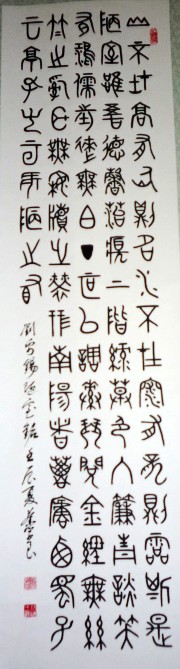 山不在高有仙則名水不在深有龍則靈斯是
陋室惟吾德馨苔痕上階綠草色入簾青談笑
有鴻儒往來無白丁可以調素琴閱金經無絲
竹之亂耳無案牘之勞形南陽諸葛廬西蜀子
云亭孔子云何陋之有
劉禹錫陋室銘 壬辰夏